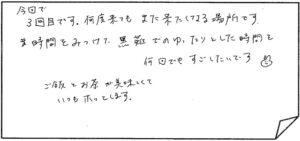 今回で
3回目です。何度来てもまた来たくなる場所です。
時間をみつけて、黒薙でのゆったりとした時間を
何回でもすごしたいです
ご飯とお茶が美味しくて
いつもホッとします。